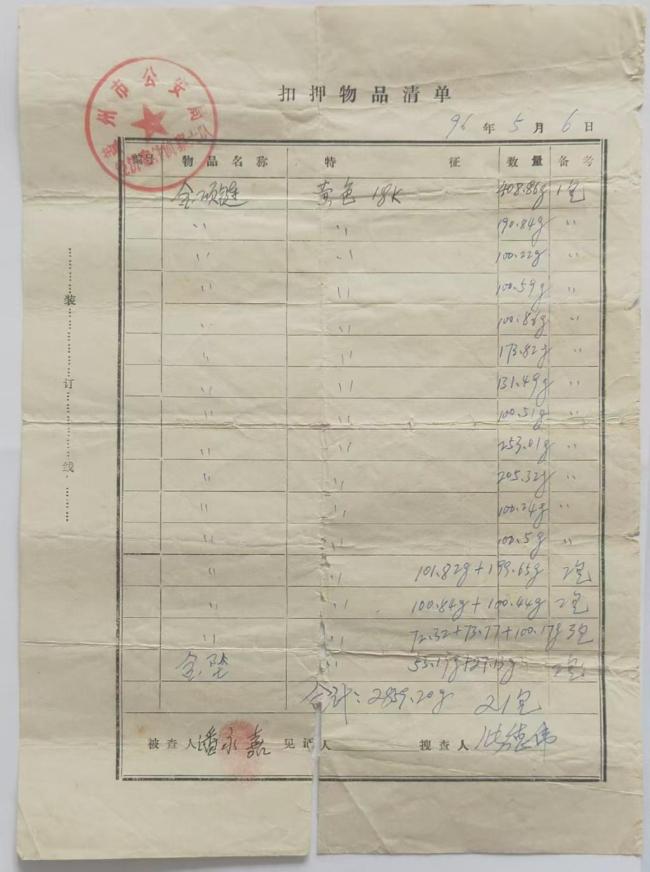 扣押物品清单
96年5月6日
州市公安
编号 物品名称 特征 数量 备考
金项链 黄色 18K 408.86g 1包
〃 〃 190.84g 〃
〃 〃 100.22g 〃
〃 〃 100.59g 〃
〃 〃 100.86g 〃
〃 〃 173.82g 〃
〃 〃 131.49g 〃
〃 〃 100.51g 〃
〃 〃 253.01g 〃
〃 〃 205.32g 〃
〃 〃 100.24g 〃
〃 〃 100.5g 〃
〃 101.82g+199.65g 2包
〃 100.84g+100.44g 2包
〃 72.32+73.77+100.17g 3包
金坠 〃 2包
合计:2859.20g 21包
被查人 潘永嘉 见证人 搜查人
装订线